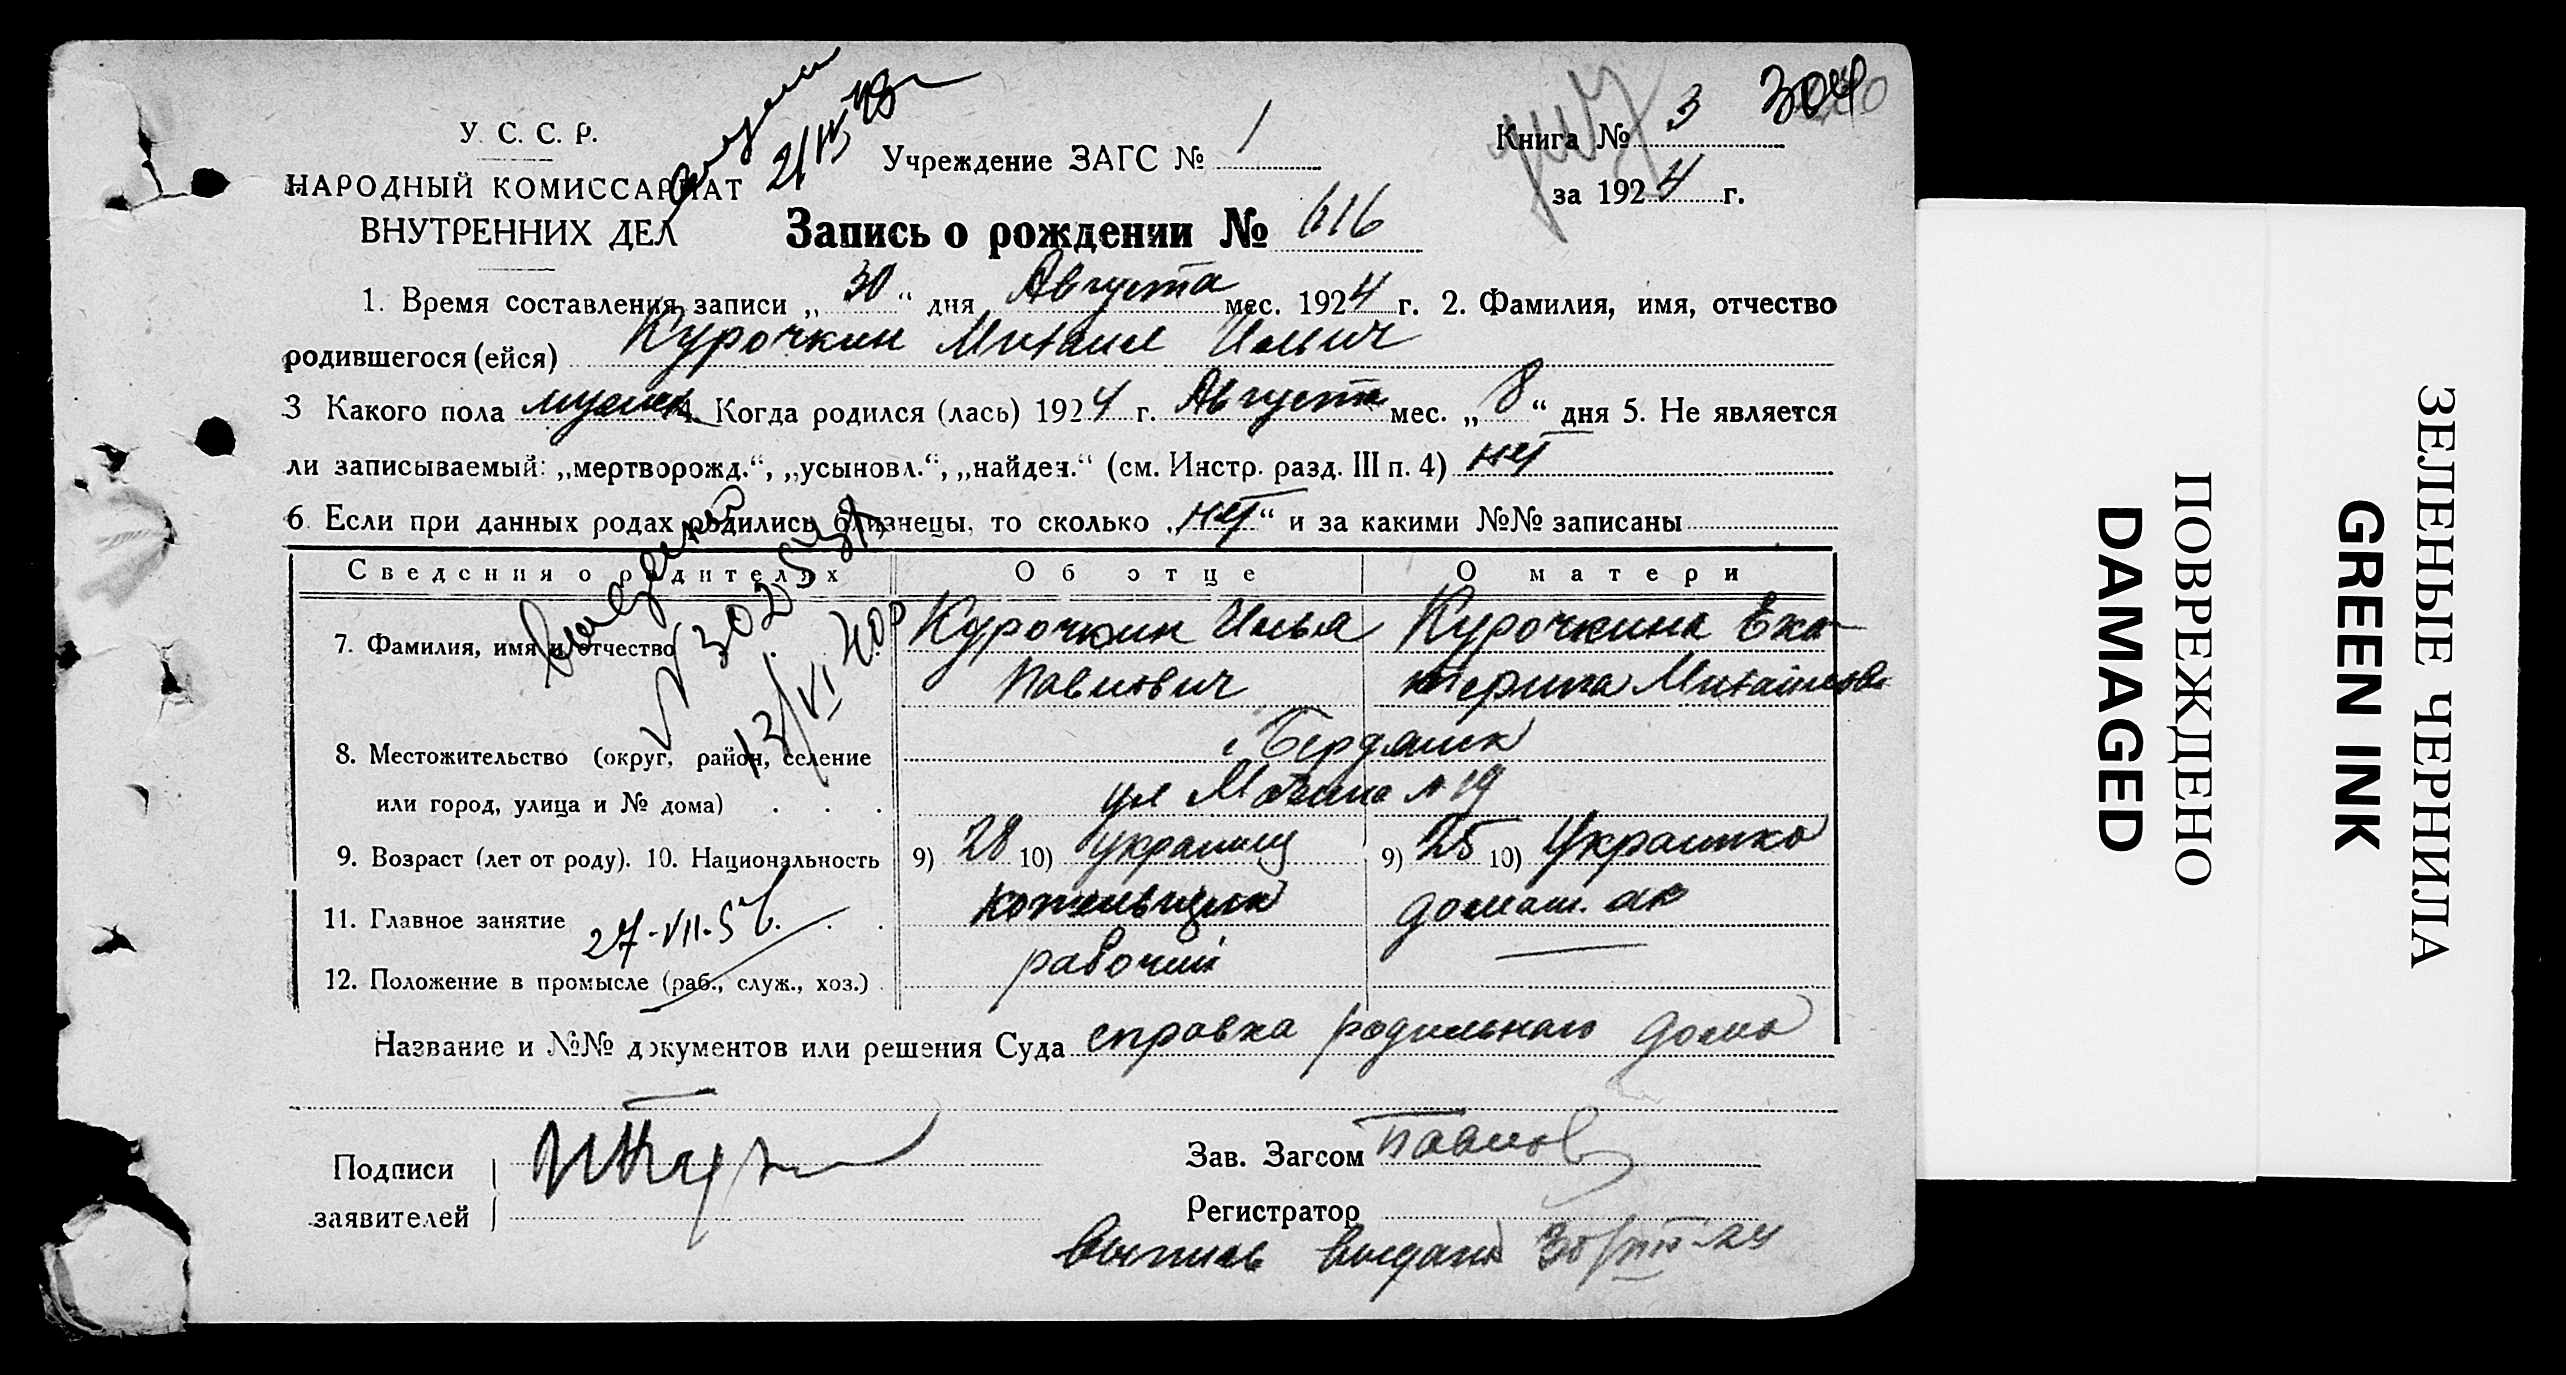 У. С. С. Р.
НАРОДНЫЙ КОМИССАРИАТ
ВНУТРЕННИХ ДЕЛ
Учреждение ЗАГС № 1
Книга № 3
304
за 1924 г.
Запись о рождении № 616
1. Время составления записи „30“ дня Августа мес. 1924 г. 2. Фамилия, имя, отчество
родившегося (ейся) Курочкин Михаил Ильич
3 Какого пола мужск 4. Когда родился (лась) 1924 г. Августа мес. „8“ дня 5. Не является
ли записываемый: „мертворожд.“, „усыновл.“, „найден.“ (см. Инстр. разд. III п. 4) нет
6. Если при данных родах родились близнецы, то сколько „нет“ и за какими №№ записаны
Сведения о родителях Об отце О матери
7. Фамилия, имя и отчество Курочкин Илья Павлович Курочкина Екатерина
8. Местожительство (округ, район, селение
или город, улица и № дома)
г Бердянск
ул № 19
9. Возраст (лет от роду). 10. Национальность 9) 28 10) украинец 9) 25 10) Украинка
11. Главное занятие кожевщик домаш.
27-VII-56.
12. Положение в промысле (раб., служ., хоз.) рабочий —
Название и №№ документов или решения Суда справка родильного дома
Подписи
заявителей
Зав. Загсом Павлов
Регистратор
Выпись выдана 30/VIII-24
ПОВРЕЖДЕНО
DAMAGED
ЗЕЛЕНЫЕ ЧЕРНИЛА
GREEN INK